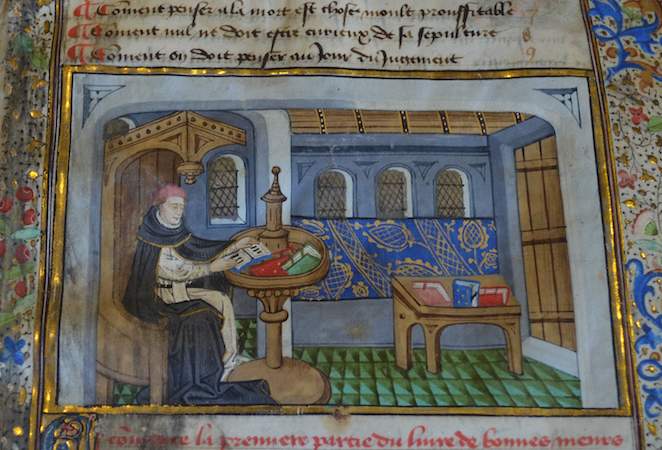 ¶ Coment penser a la mort est chose moult prouffitable
¶ Coment nul ne doit estre curieux de sa sepulture
¶ Coment on doit penser au Jour du Jugement
la premiere partie du livre de bonnes meurs